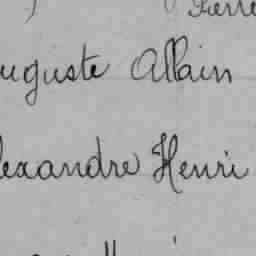 Pierre
uguste Allain
lexandre Henri